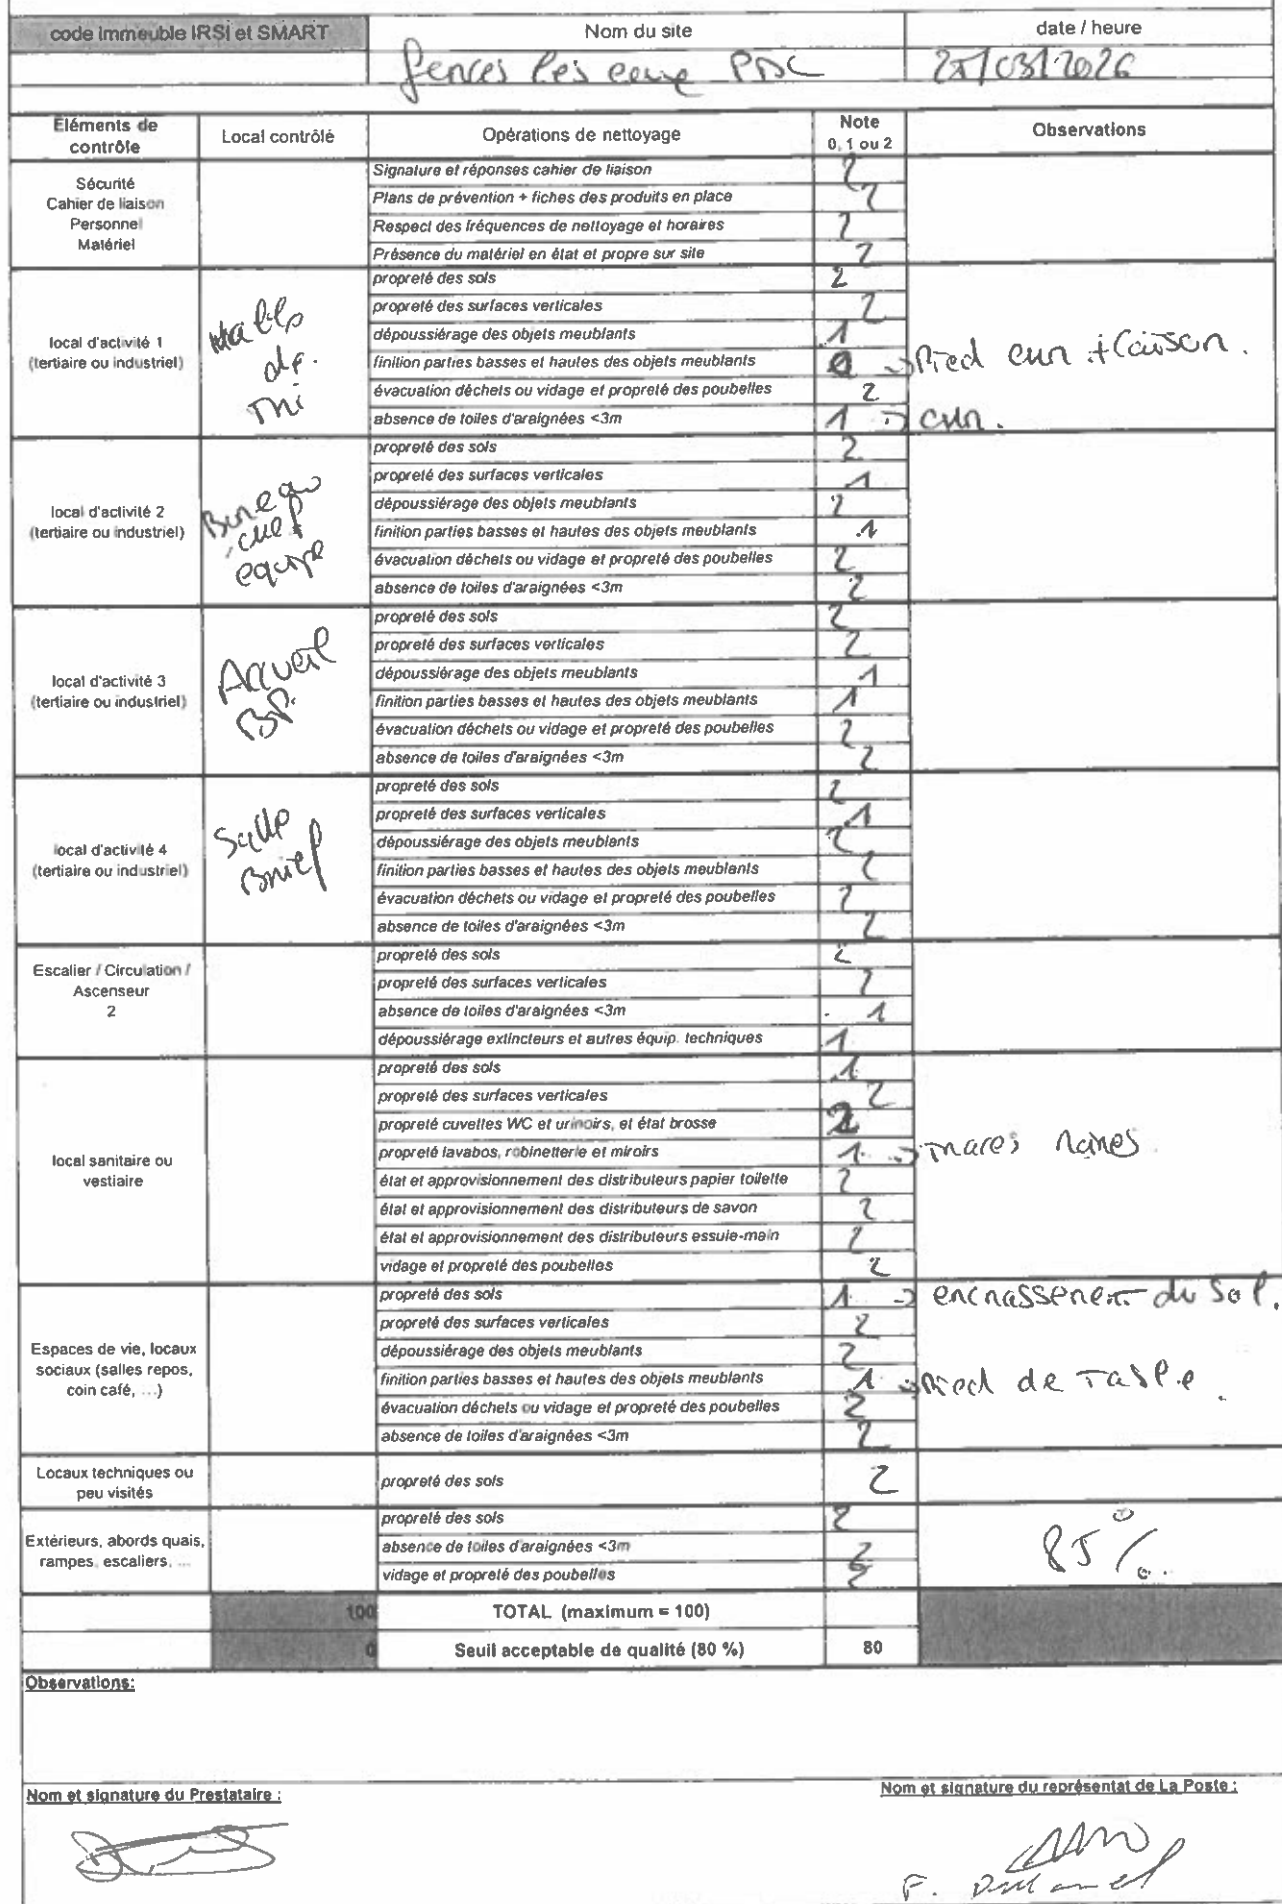 code immeuble IRSI et SMART Nom du site date / heure
PDC 25/03/2026
Eléments de contrôle Local contrôlé Opérations de nettoyage Note 0, 1 ou 2 Observations
Sécurité
Cahier de liaison
Personnel
Matériel
Signature et réponses cahier de liaison 2
Plans de prévention + fiches des produits en place 2
Respect des fréquences de nettoyage et horaires 2
Présence du matériel en état et propre sur site 2
local d'activité 1
(tertiaire ou industriel)
propreté des sols 2
propreté des surfaces verticales 2
dépoussiérage des objets meublants 1
finition parties basses et hautes des objets meublants 0 → Pied
évacuation déchets ou vidage et propreté des poubelles 2
absence de toiles d'araignées <3m 1 →
local d'activité 2
(tertiaire ou industriel)
Bureau
chef
equipe
propreté des sols 2
propreté des surfaces verticales 1
dépoussiérage des objets meublants 2
finition parties basses et hautes des objets meublants 1
évacuation déchets ou vidage et propreté des poubelles 2
absence de toiles d'araignées <3m 2
local d'activité 3
(tertiaire ou industriel)
Accueil
BP.
propreté des sols 2
propreté des surfaces verticales 2
dépoussiérage des objets meublants 1
finition parties basses et hautes des objets meublants 1
évacuation déchets ou vidage et propreté des poubelles 2
absence de toiles d'araignées <3m 2
local d'activité 4
(tertiaire ou industriel)
Salle
Brief
propreté des sols 2
propreté des surfaces verticales 1
dépoussiérage des objets meublants 2
finition parties basses et hautes des objets meublants 2
évacuation déchets ou vidage et propreté des poubelles 2
absence de toiles d'araignées <3m 2
Escalier / Circulation /
Ascenseur
2
propreté des sols 2
propreté des surfaces verticales 2
absence de toiles d'araignées <3m 1
dépoussiérage extincteurs et autres équip. techniques 1
local sanitaire ou
vestiaire
propreté des sols 1
propreté des surfaces verticales 2
propreté cuvettes WC et urinoirs, et état brosse 2
propreté lavabos, robinetterie et miroirs 1 →
état et approvisionnement des distributeurs papier toilette 2
état et approvisionnement des distributeurs de savon 2
état et approvisionnement des distributeurs essuie-main 2
vidage et propreté des poubelles 2
Espaces de vie, locaux
sociaux (salles repos,
coin café, ...)
propreté des sols 1 → encrassement du sol.
propreté des surfaces verticales 2
dépoussiérage des objets meublants 2
finition parties basses et hautes des objets meublants 1 → Pied de Table.
évacuation déchets ou vidage et propreté des poubelles 2
absence de toiles d'araignées <3m 2
Locaux techniques ou
peu visités
propreté des sols 2
Extérieurs, abords quais,
rampes, escaliers, ...
propreté des sols 2
absence de toiles d'araignées <3m 2
vidage et propreté des poubelles 2
85 %.
100 TOTAL (maximum = 100)
0 Seuil acceptable de qualité (80 %) 80
Observations:
Nom et signature du Prestataire : Nom et signature du représentat de La Poste :
F.